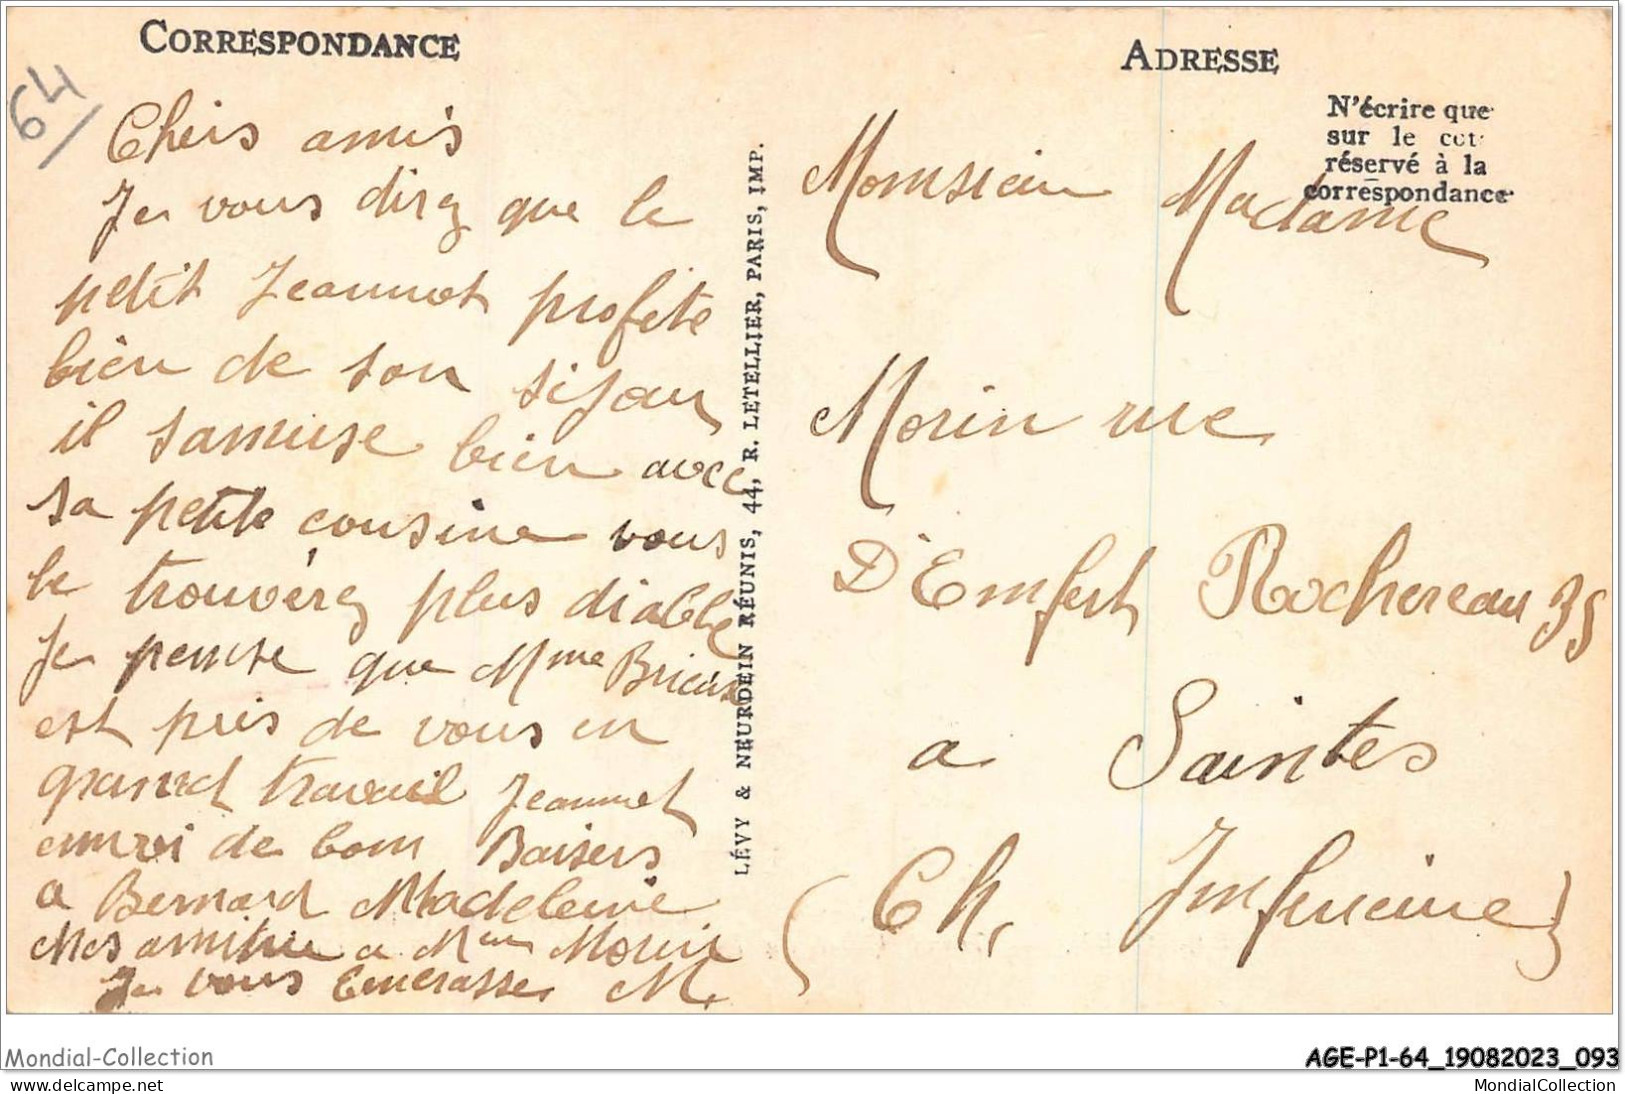 CORRESPONDANCE
64
Chers amis
Je vous direz que le
petit Jeannot profite
bien de son sijour
il samuse bien avec
sa petite cousine vous
le trouvérez plus diable
Je pense que Mme
est pris de vous en
grand travail Jeannot
envoi de bon Baisers
a Bernard Madeleine
Mes amitiu a Mme Morin
Je vous Emerasse M.
LÉVY & NEURDEIN RÉUNIS, 44, R. LETELLIER, PARIS, IMP.
ADRESSE
N'écrire que
sur le cot
réservé à la
correspondance
Monsieur Madame
Morin rue
D'Emfert Rochereau 35
a Saintes
(Ch. Inferieure)
Mondial-Collection
AGE-P1-64_19082023_093
www.delcampe.net
MondialCollection